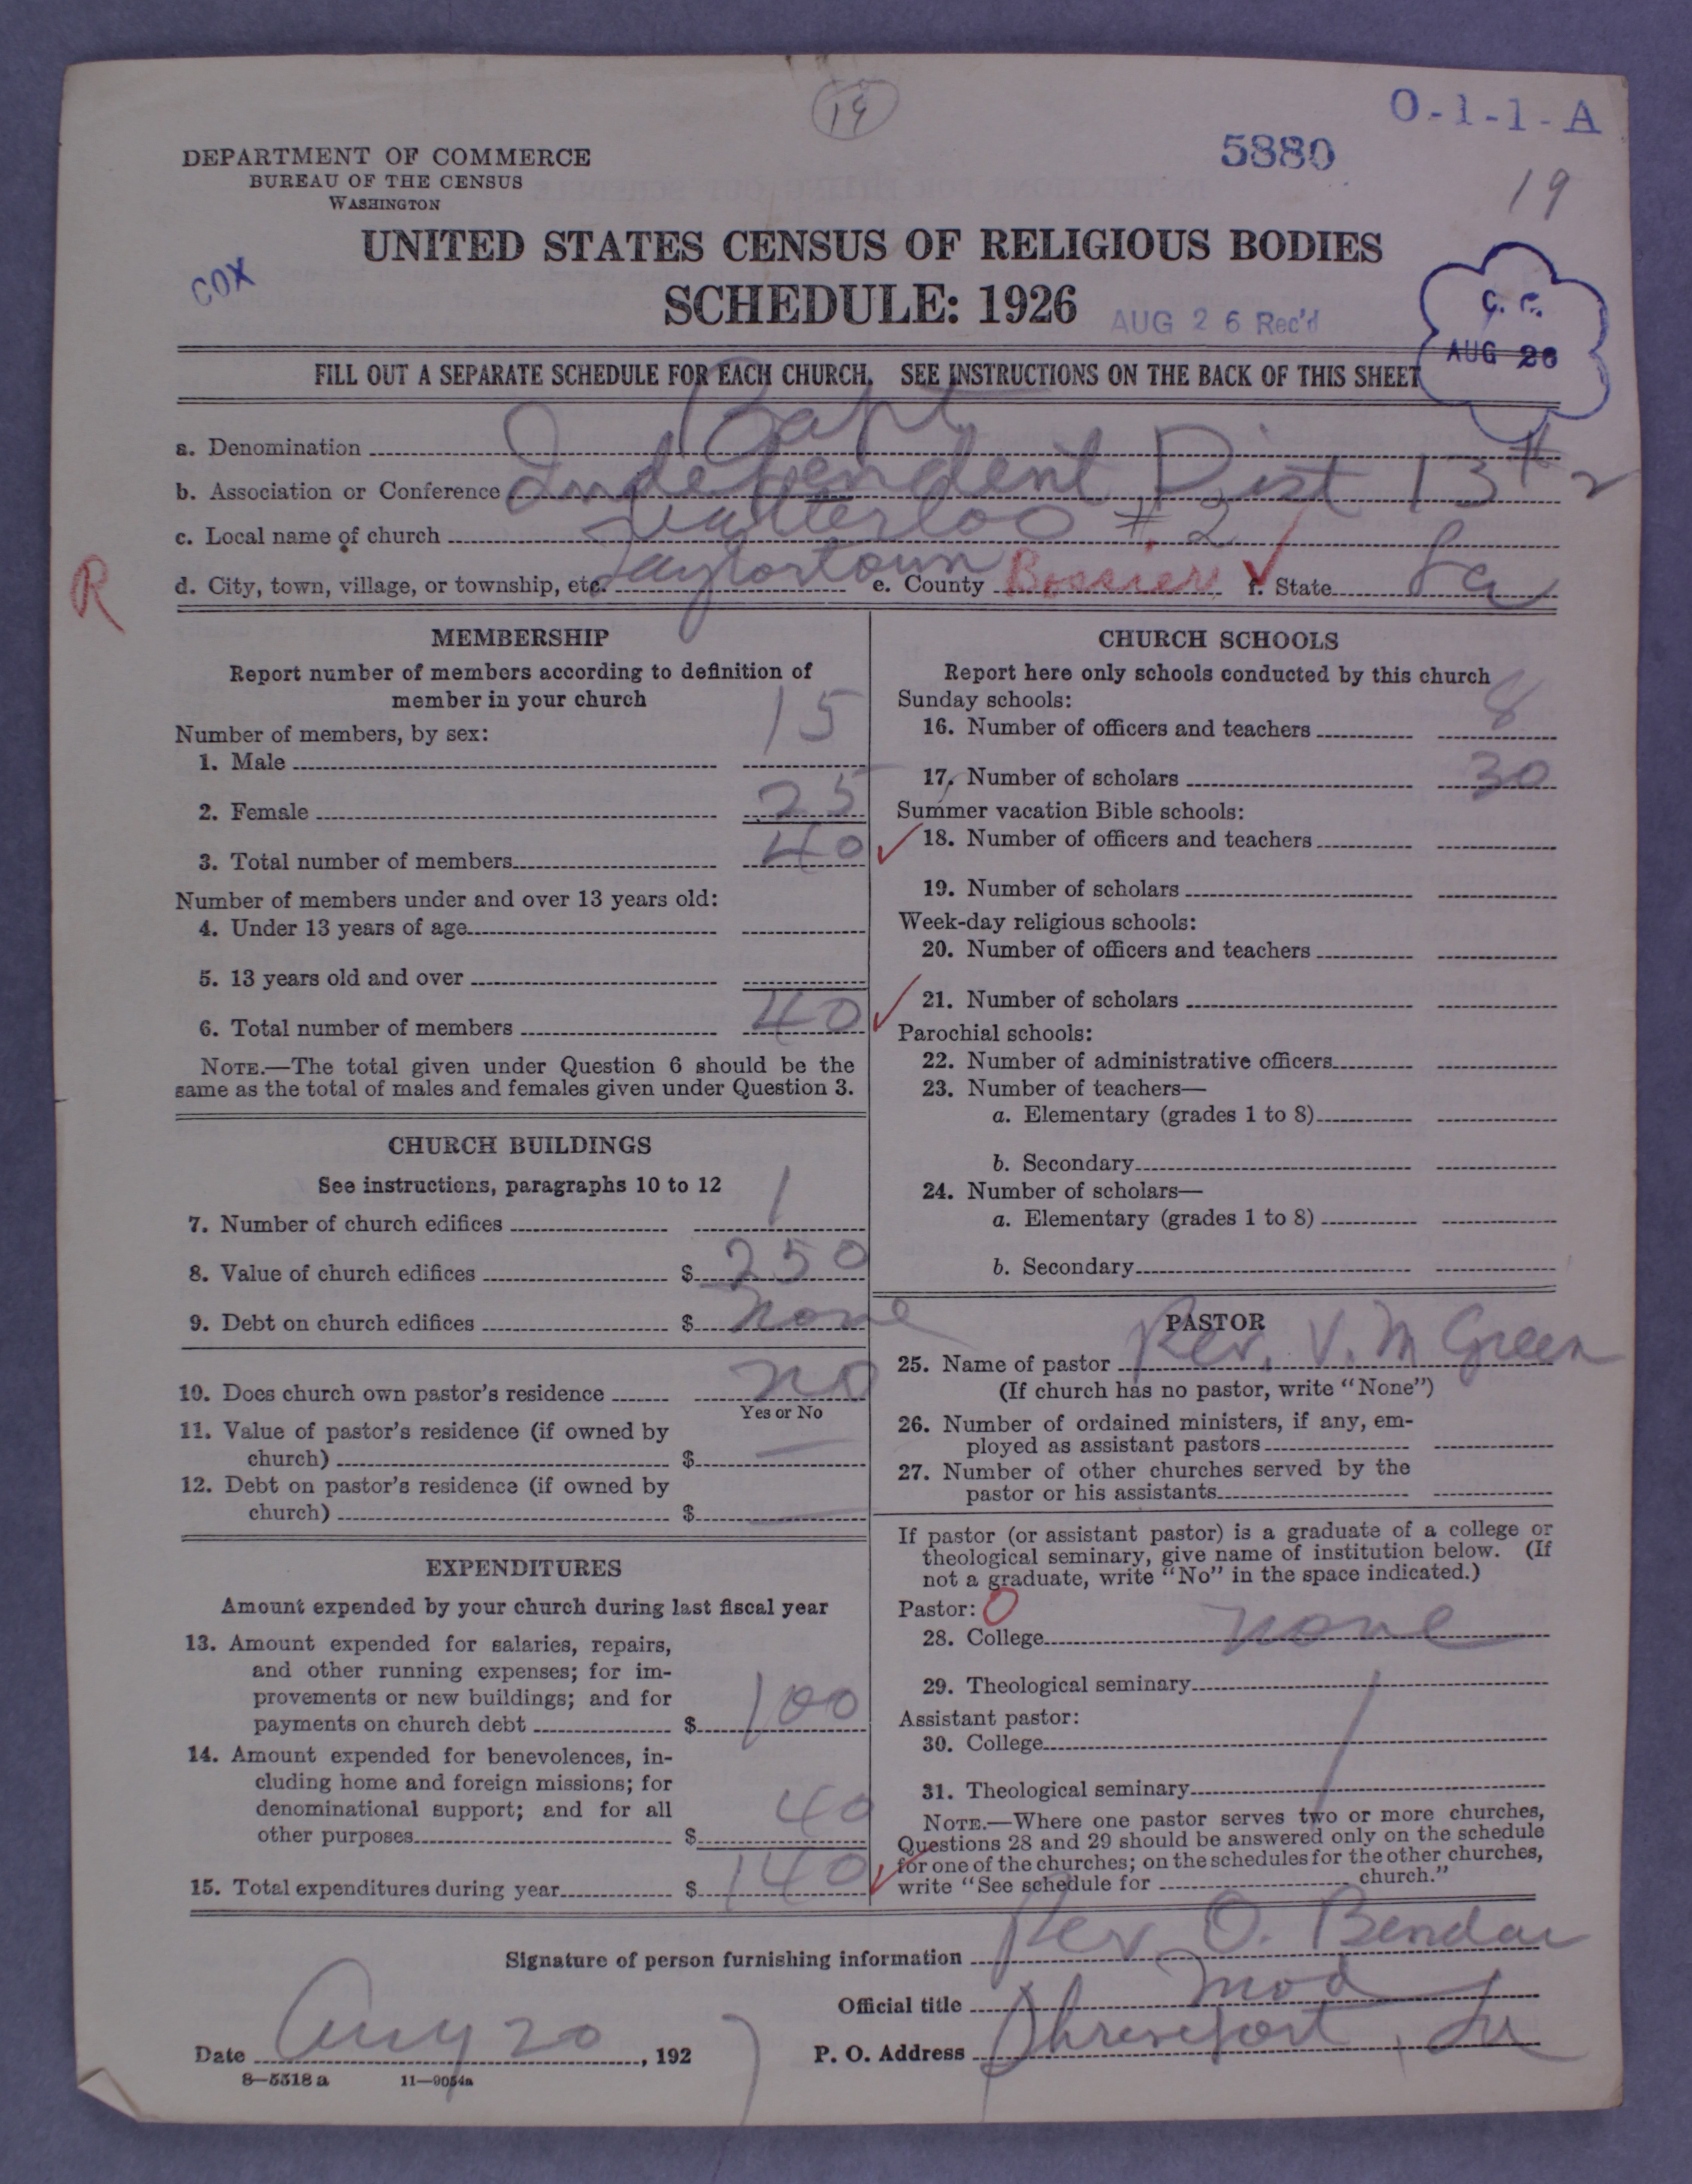 19
O-1-1-A
5880
19
DEPARTMENT OF COMMERCE
BUREAU OF THE CENSUS
WASHINGTON
UNITED STATES CENSUS OF RELIGIOUS BODIES
COX
SCHEDULE: 1926
AUG 26 Rec'd
AUG 26
FILL OUT A SEPARATE SCHEDULE FOR EACH CHURCH. SEE INSTRUCTIONS ON THE BACK OF THIS SHEET
a. Denomination Bapt
b. Association or Conference Independent Dist 13 # 2
c. Local name of church Watterloo # 2
R
d. City, town, village, or township, etc. Taylortown e. County Bossier f. State La
MEMBERSHIP
Report number of members according to definition of
member in your church
Number of members, by sex:
1. Male 15
2. Female 25
3. Total number of members 40
Number of members under and over 13 years old:
4. Under 13 years of age
5. 13 years old and over
6. Total number of members 40
NOTE.—The total given under Question 6 should be the
same as the total of males and females given under Question 3.
CHURCH BUILDINGS
See instructions, paragraphs 10 to 12
7. Number of church edifices 1
8. Value of church edifices $ 250
9. Debt on church edifices $ none
10. Does church own pastor's residence no
Yes or No
11. Value of pastor's residence (if owned by
church) $ —
12. Debt on pastor's residence (if owned by
church) $ —
EXPENDITURES
Amount expended by your church during last fiscal year
13. Amount expended for salaries, repairs,
and other running expenses; for im-
provements or new buildings; and for
payments on church debt $ 100
14. Amount expended for benevolences, in-
cluding home and foreign missions; for
denominational support; and for all
other purposes $ 40
15. Total expenditures during year $ 140
CHURCH SCHOOLS
Report here only schools conducted by this church
Sunday schools:
16. Number of officers and teachers 8
17. Number of scholars 30
Summer vacation Bible schools:
18. Number of officers and teachers
19. Number of scholars
Week-day religious schools:
20. Number of officers and teachers
21. Number of scholars
Parochial schools:
22. Number of administrative officers
23. Number of teachers—
a. Elementary (grades 1 to 8)
b. Secondary
24. Number of scholars—
a. Elementary (grades 1 to 8)
b. Secondary
PASTOR
25. Name of pastor Rev. V. M Green
(If church has no pastor, write "None")
26. Number of ordained ministers, if any, em-
ployed as assistant pastors
27. Number of other churches served by the
pastor or his assistants
If pastor (or assistant pastor) is a graduate of a college or
theological seminary, give name of institution below. (If
not a graduate, write "No" in the space indicated.)
Pastor: 0
28. College none
29. Theological seminary
Assistant pastor:
30. College
31. Theological seminary
NOTE.—Where one pastor serves two or more churches,
Questions 28 and 29 should be answered only on the schedule
for one of the churches; on the schedules for the other churches,
write "See schedule for church."
Signature of person furnishing information Rev. O. Bendaw
Official title Mod
Date Aug 20, 192 P. O. Address Shreveport, La
8—5518 a 11—9054a